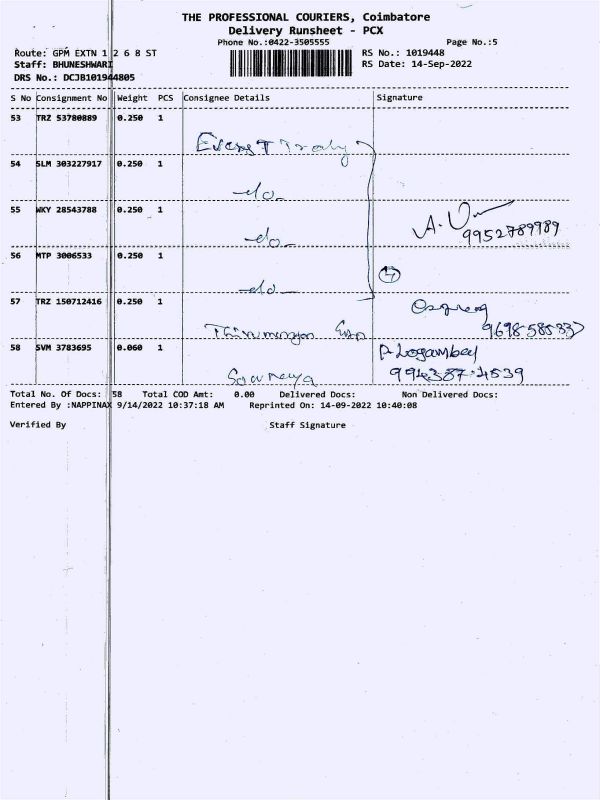 THE PROFESSIONAL COURIERS, Coimbatore
Delivery Runsheet - PCX
Phone No.:0422-3505555
Page No.:5
Route: GPM EXTN 1 2 6 8 ST
RS No.: 1019448
Staff: BHUNESHWARI
RS Date: 14-Sep-2022
DRS No.: DCJB101944805
S No Consignment No Weight PCS Consignee Details Signature
53 TRZ 53780889 0.250 1
54 SLM 303227917 0.250 1
-do-
55 WKY 28543788 0.250 1
-do-
9952789989
56 MTP 3006533 0.250 1
-do-
4
57 TRZ 150712416 0.250 1
58 SVM 3783695 0.060 1
Total No. Of Docs: 58 Total COD Amt: 0.00 Delivered Docs: Non Delivered Docs:
Entered By :NAPPINAX 9/14/2022 10:37:18 AM Reprinted On: 14-09-2022 10:40:08
Verified By Staff Signature